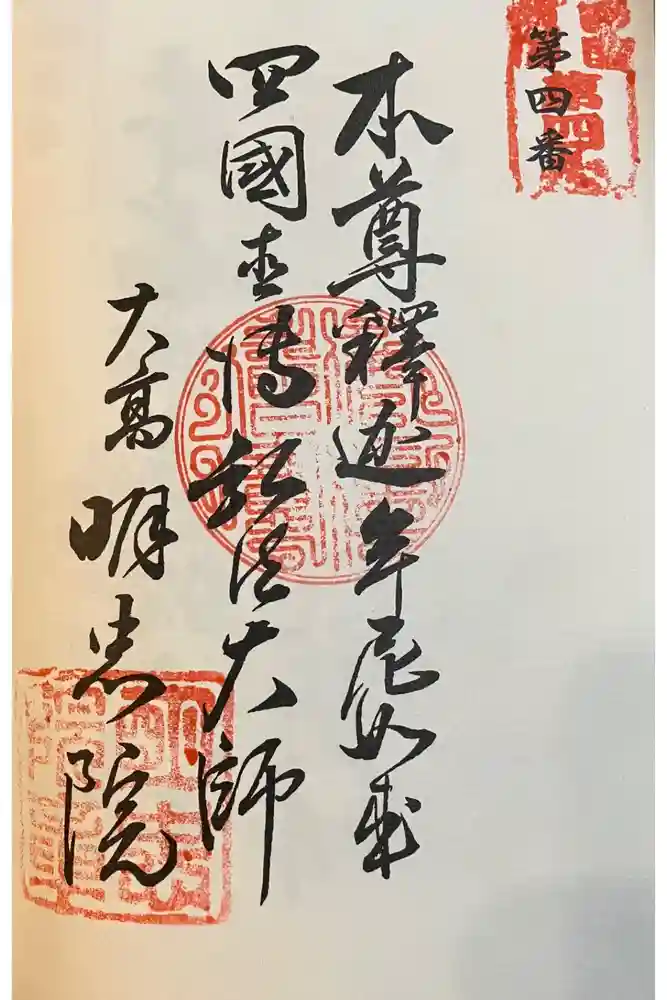 第四番
本尊釋迦牟尼如来
四國直傳弘法大師
大高 明忠院